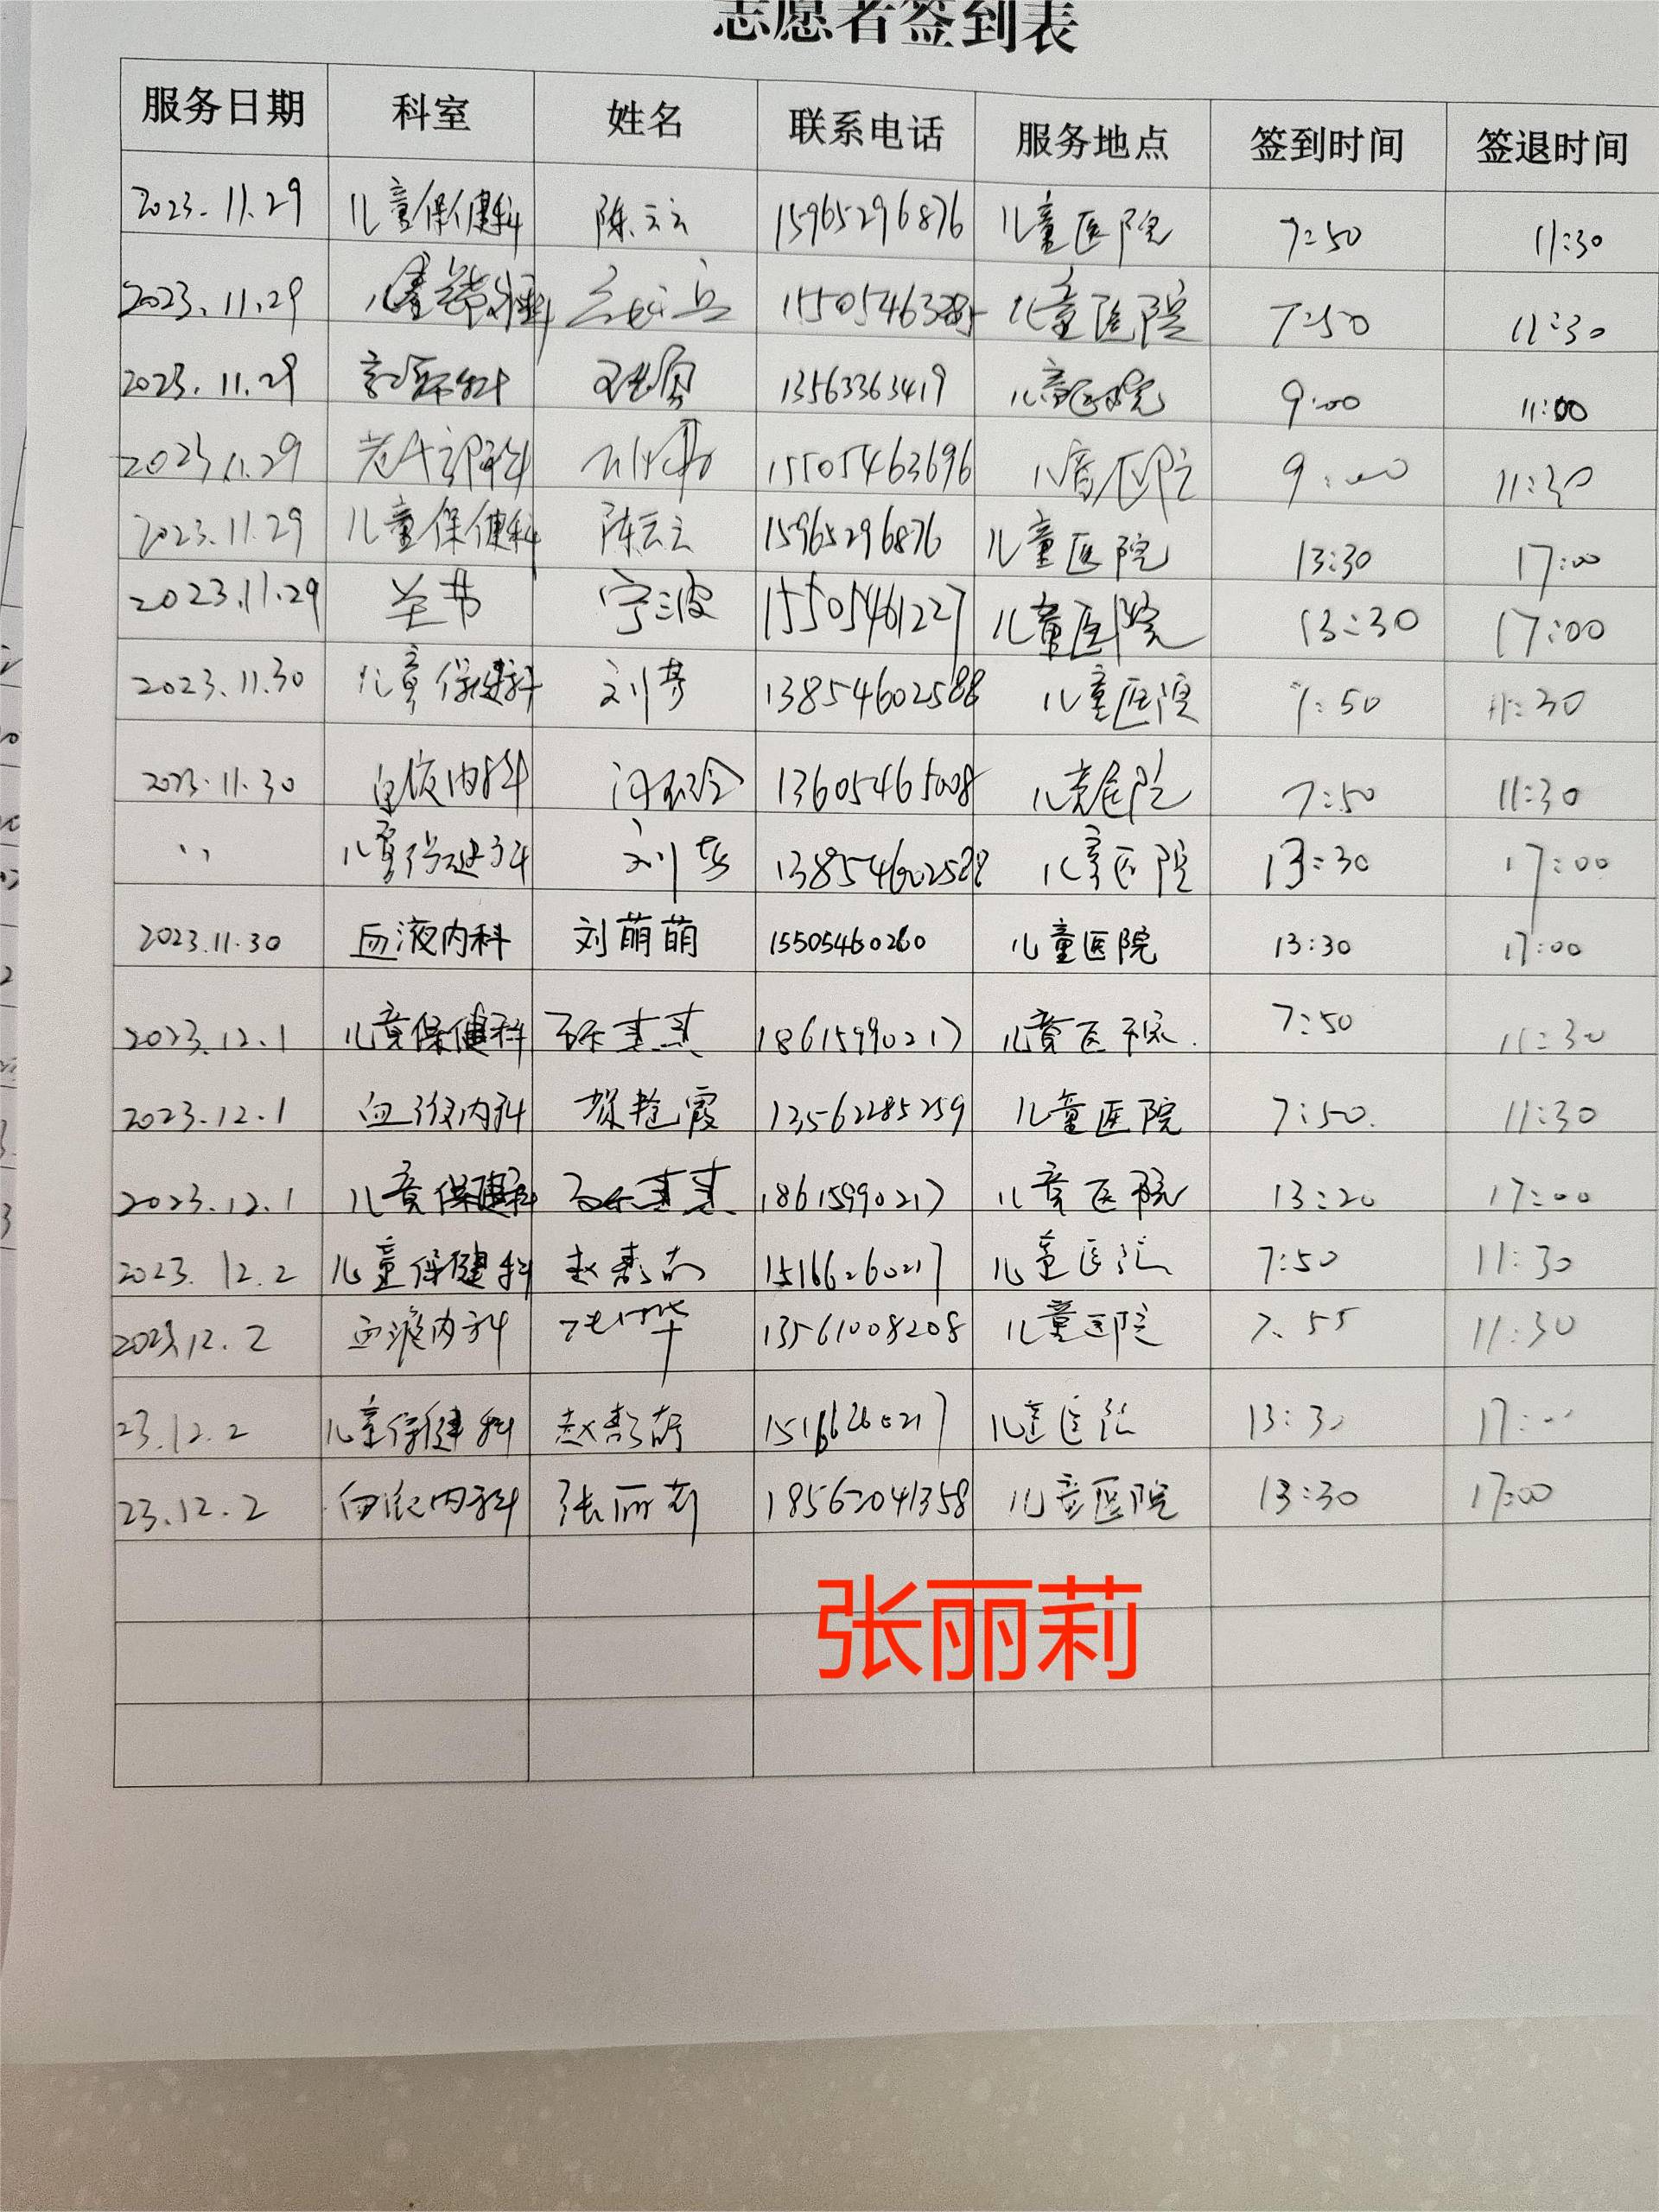 志愿者签到表
服务日期 科室 姓名 联系电话 服务地点 签到时间 签退时间
2023.11.29 儿童保健科 陈云云 15965296876 儿童医院 7:50 11:30
2023.11.29 儿童医院 7:50 11:30
2023.11.29 13563363419 儿童医院 9:00 11:00
2023.11.29 15505463696 儿童医院 9:00 11:30
2023.11.29 儿童保健科 陈云云 15965296876 儿童医院 13:30 17:00
2023.11.29 宁波 15505461227 儿童医院 13:30 17:00
2023.11.30 儿童保健科 13854602588 儿童医院 7:50 11:30
2023.11.30 血液内科 13605465008 儿童医院 7:50 11:30
〃 儿童保健科 13854602588 儿童医院 13:30 17:00
2023.11.30 血液内科 刘萌萌 15505460260 儿童医院 13:30 17:00
2023.12.1 儿童保健科 18615990217 儿童医院 7:50 11:30
2023.12.1 血液内科 13562285259 儿童医院 7:50 11:30
2023.12.1 儿童保健科 18615990217 儿童医院 13:20 17:00
2023.12.2 儿童保健科 15166260217 儿童医院 7:50 11:30
2023.12.2 血液内科 13561008208 儿童医院 7:55 11:30
23.12.2 儿童保健科 15166260217 儿童医院 13:30 17:00
23.12.2 血液内科 张丽莉 18562041358 儿童医院 13:30 17:00
张丽莉